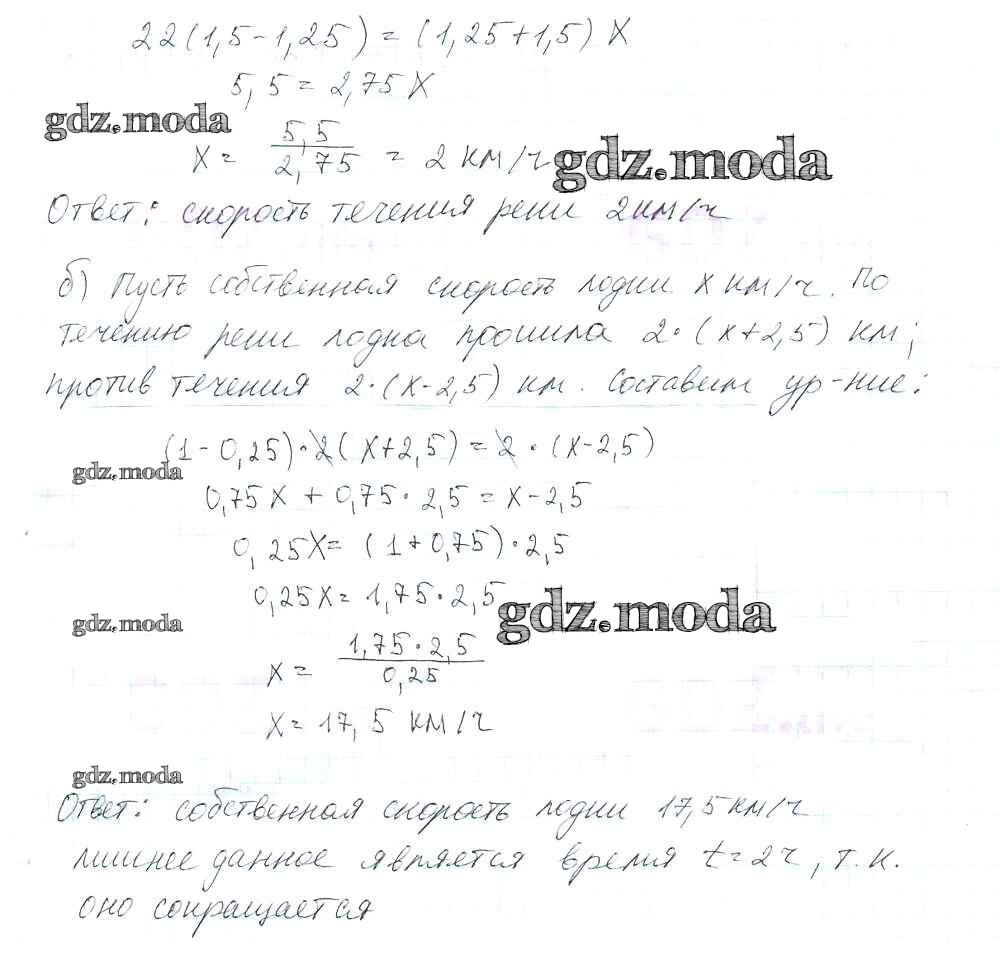 22(1,5-1,25) = (1,25+1,5) X
5,5 = 2,75 X
gdz.moda
X = 5,5 / 2,75 = 2 км/ч gdz.moda
Ответ: скорость течения реки 2 км/ч
б) Пусть собственная скорость лодки х км/ч. По
течению реки лодка прошла 2·(х+2,5) км;
против течения 2·(х-2,5) км. Составим ур-ние:
(1-0,25)·2(х+2,5) = 2·(х-2,5)
gdz.moda
0,75х + 0,75·2,5 = х-2,5
0,25х = (1+0,75)·2,5
0,25х = 1,75·2,5 gdz.moda
gdz.moda
х = 1,75·2,5 / 0,25
х = 17,5 км/ч
gdz.moda
Ответ: собственная скорость лодки 17,5 км/ч
лишнее данное является время t=2ч, т.к.
оно сокращается